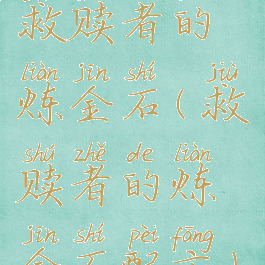 救赎者的
liàn jīn shí jiù
炼金石(救
shú zhě de liàn
赎者的炼
jīn shí pèi fāng
金石配方)